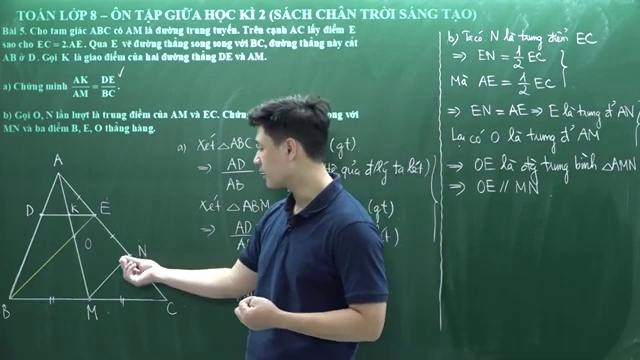 TOÁN LỚP 8 – ÔN TẬP GIỮA HỌC KÌ 2 (SÁCH CHÂN TRỜI SÁNG TẠO)
Bài 5. Cho tam giác ABC có AM là đường trung tuyến. Trên cạnh AC lấy điểm E
sao cho EC = 2.AE. Qua E vẽ đường thẳng song song với BC, đường thẳng này cắt
AB ở D. Gọi K là giao điểm của hai đường thẳng DE và AM.
a) Chứng minh AK/AM = DE/BC.
b) Gọi O, N lần lượt là trung điểm của AM và EC. với
MN và ba điểm B, E, O thẳng hàng.
a) Xét △ABC (gt)
⇒ AD/AB quả đ/lý ta lét)
Xét △ABM (gt)
⇒
A
D
K
E
O
N
B
M
C
b) Ta có N là trung điểm EC
⇒ EN = 1/2 EC
Mà AE = 1/2 EC
⇒ EN = AE ⇒ E là trung đ' AN
Lại có O là trung đ' AM
⇒ OE là đg trung bình △AMN
⇒ OE // MN